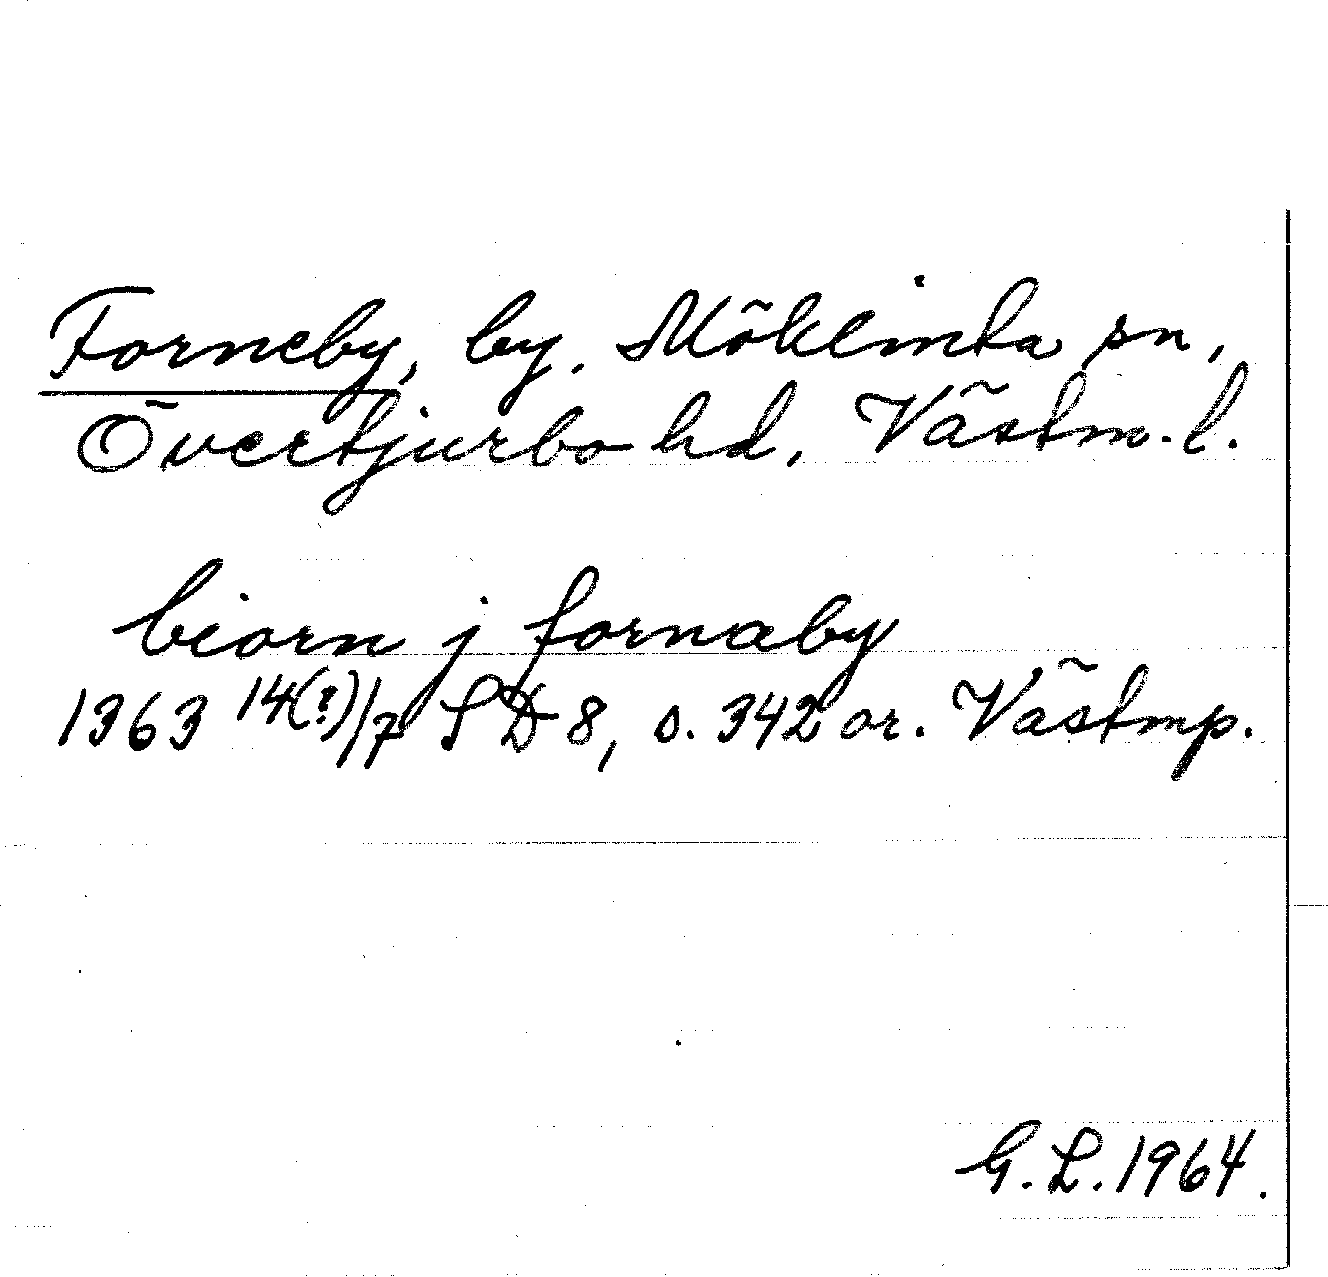 Forneby, by. Möklinta sn,
Övertjurbo hd, Västm. l.
biorn j fornaby
1363 14(?)/7 SD 8, s. 342 or. Västmp.
G. L. 1964.